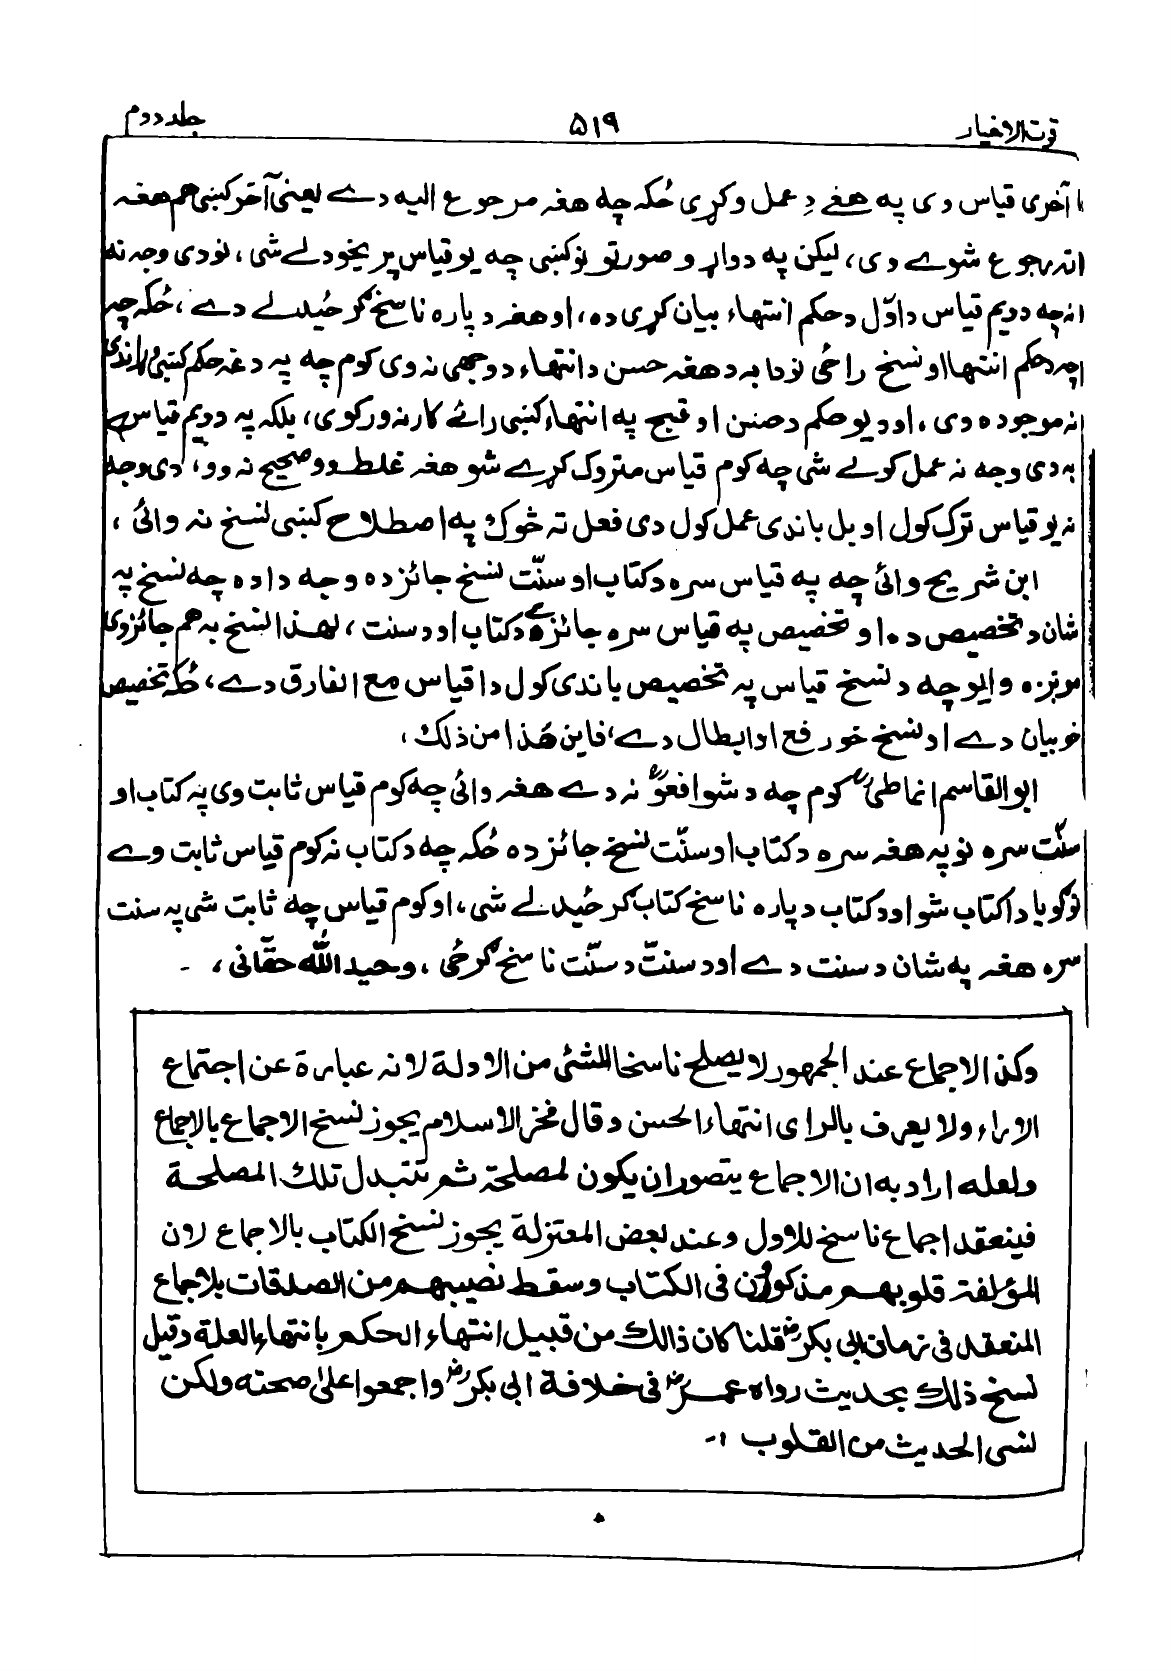 قوت الاخیار ۵۱۹ جلد دوم
آخری قیاس دی په هغے دِ عمل وکړی ځکه چه هغه مرجوع الیه دے یعنی آخر کښی هم هغه
ته رجوع شوے دی، لیکن په دواړو صورتو نو کښی چه یو قیاس پریخودلے شی، نو دی وجه نه
نه چه دویم قیاس د اوّل د حکم انتهاء بیان کړی ده، او هغه د پاره ناسخ ګرځیدلے دے، ځکه چه
چه د حکم انتها او نسخ راځی نو دا به د هغه حسن د انتهاء د وجهی نه وی کوم چه په دغه حکم کښی وړاندی
نه موجوده وی، او د یو حکم د حسن او قبح په انتهاء کښی رائے کار نه ورکوی، بلکه په دویم قیاس
په دی وجه نه عمل کولے شی چه کوم قیاس متروک کړے شو هغه غلط وو صحیح نه وو، دی وجه
نه یو قیاس ترک کول او بل باندی عمل کول دی فعل ته څوک په اصطلاح کښی نسخ نه وائی،
ابن شریح وائی چه په قیاس سره د کتاب او سنّت نسخ جائز ده وجه دا ده چه نسخ په
شان د تخصیص ده او تخصیص په قیاس سره جائز دے د کتاب او د سنت، لهذا نسخ به هم جائز وی
مونږه وایو چه د نسخ قیاس په تخصیص باندی کول دا قیاس مع الفارق دے، ځکه تخصیص
خو بیان دے او نسخ خو رفع او ابطال دے، فاین هٰذا من ذلک،
ابو القاسم انماطیؒ کوم چه د شوافعوؒ نه دے هغه وائی چه کوم قیاس ثابت وی په کتاب او
سنّت سره نو په هغه سره د کتاب او سنّت نسخ جائز ده ځکه چه د کتاب نه کوم قیاس ثابت وے
نو ګویا دا کتاب شو او د کتاب د پاره ناسخ کتاب ګرځیدلے شی، او کوم قیاس چه ثابت شی په سنت
سره هغه په شان د سنت دے او د سنتّ د سنّت ناسخ ګرځی، وحید اللّٰه حقّانی، ـ
وکذا الاجماع عند الجمهور لا یصلح ناسخا للشئی من الادلة لانه عبارة عن اجتماع
الاراء ولا یعرف بالرای انتهاء الحسن وقال فخر الاسلام یجوز نسخ الاجماع بالاجماع
ولعله اراد به ان الاجماع یتصور ان یکون لمصلحة ثم تتبدل تلک المصلحة
فینعقد اجماع ناسخ للاول وعند بعض المعتزلة یجوز نسخ الکتاب بالاجماع لان
المؤلفة قلوبهم مذکورون فی الکتاب وسقط نصیبهم من الصدقات بالاجماع
المنعقد فی زمان ابی بکرؓ قلنا کان ذالک من قبیل انتهاء الحکم بانتهاء العلة وقیل
نسخ ذلک بحدیث رواه عمرؓ فی خلافة ابی بکرؓ واجمعوا علیٰ صحته ولکن
نسی الحدیث من القلوب ،ـ